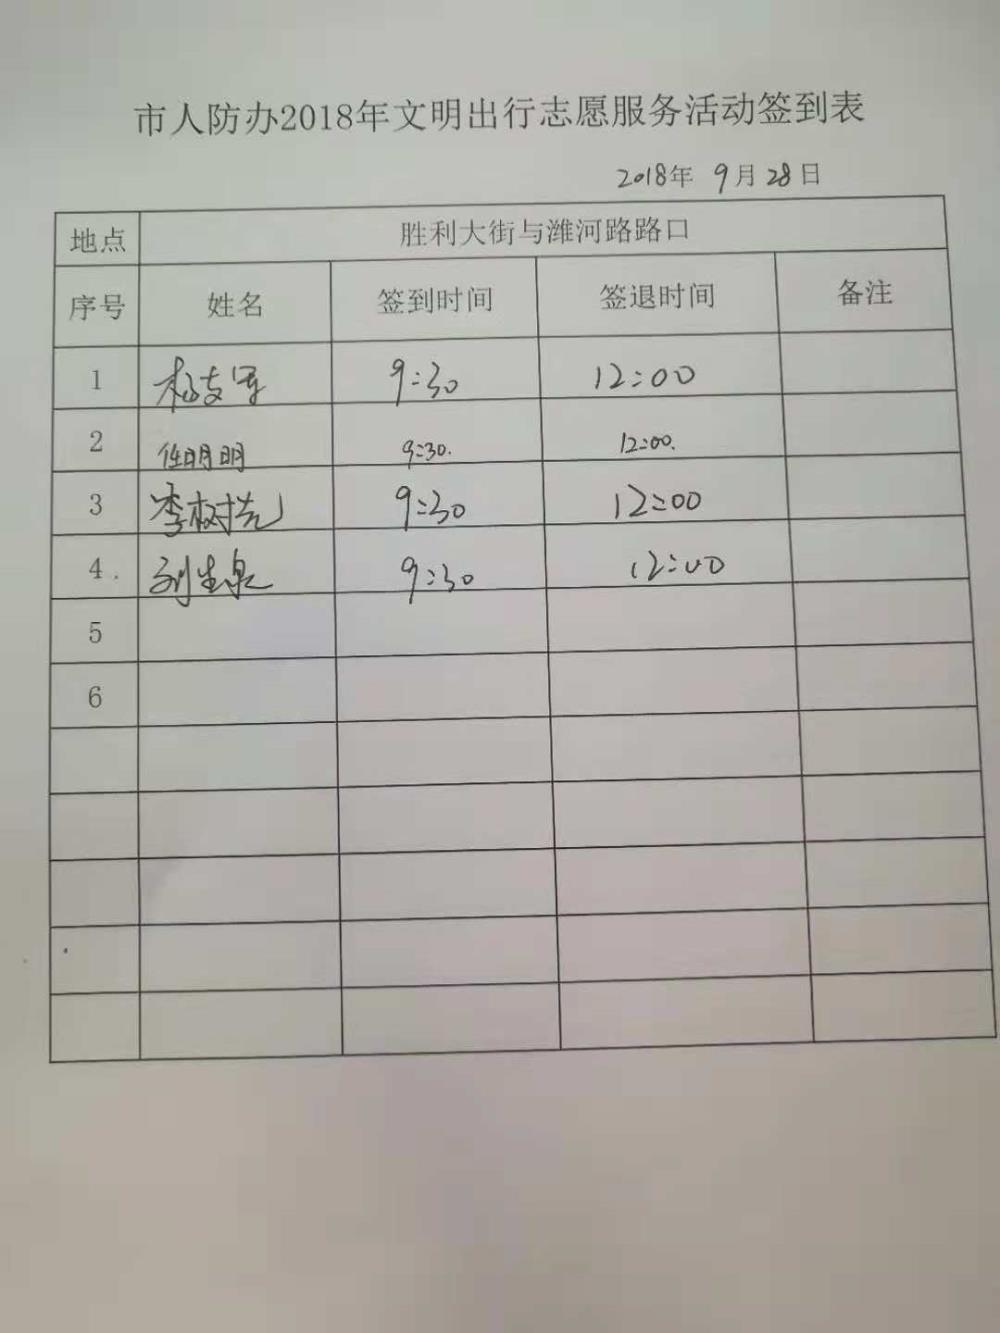 市人防办2018年文明出行志愿服务活动签到表
2018年 9月28日
地点 胜利大街与潍河路路口
序号 姓名 签到时间 签退时间 备注
1 杨志军 9:30 12:00
2 任明明 9:30. 12:00.
3 李树 9:30 12:00
4. 刘生泉 9:30 12:00
5
6